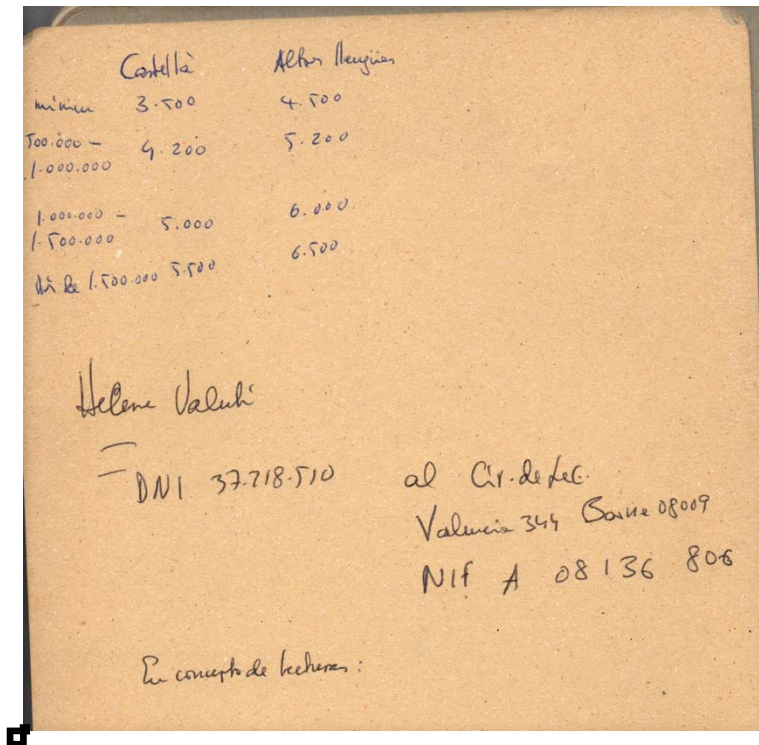 Castellà Altres llengües
mínim 3.500 4.500
500.000 - 4.200 5.200
1.000.000
1.000.000 - 5.000 6.000
1.500.000
Més de 1.500.000 5.500 6.500
Helena Valentí
DNI 37.218.510 al Cír. de Lec.
Valencia 344 Barna 08009
NIF A 08136 806
En concepto de lecturas: